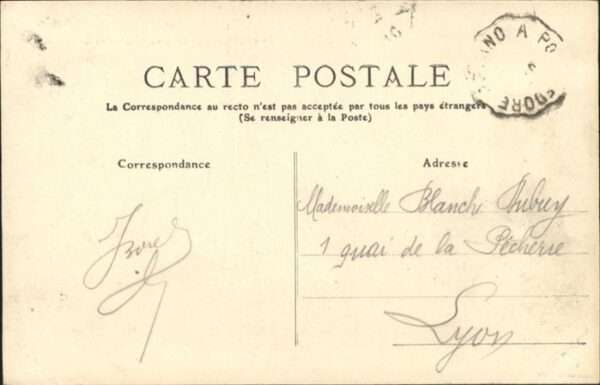 ANO A PO
DORE
CARTE POSTALE
La Correspondance au recto n'est pas acceptée par tous les pays étrangers
(Se renseigner à la Poste)
Correspondance
Adresse
Mademoiselle Blanch
1 quai de la Pêcherie
Lyon